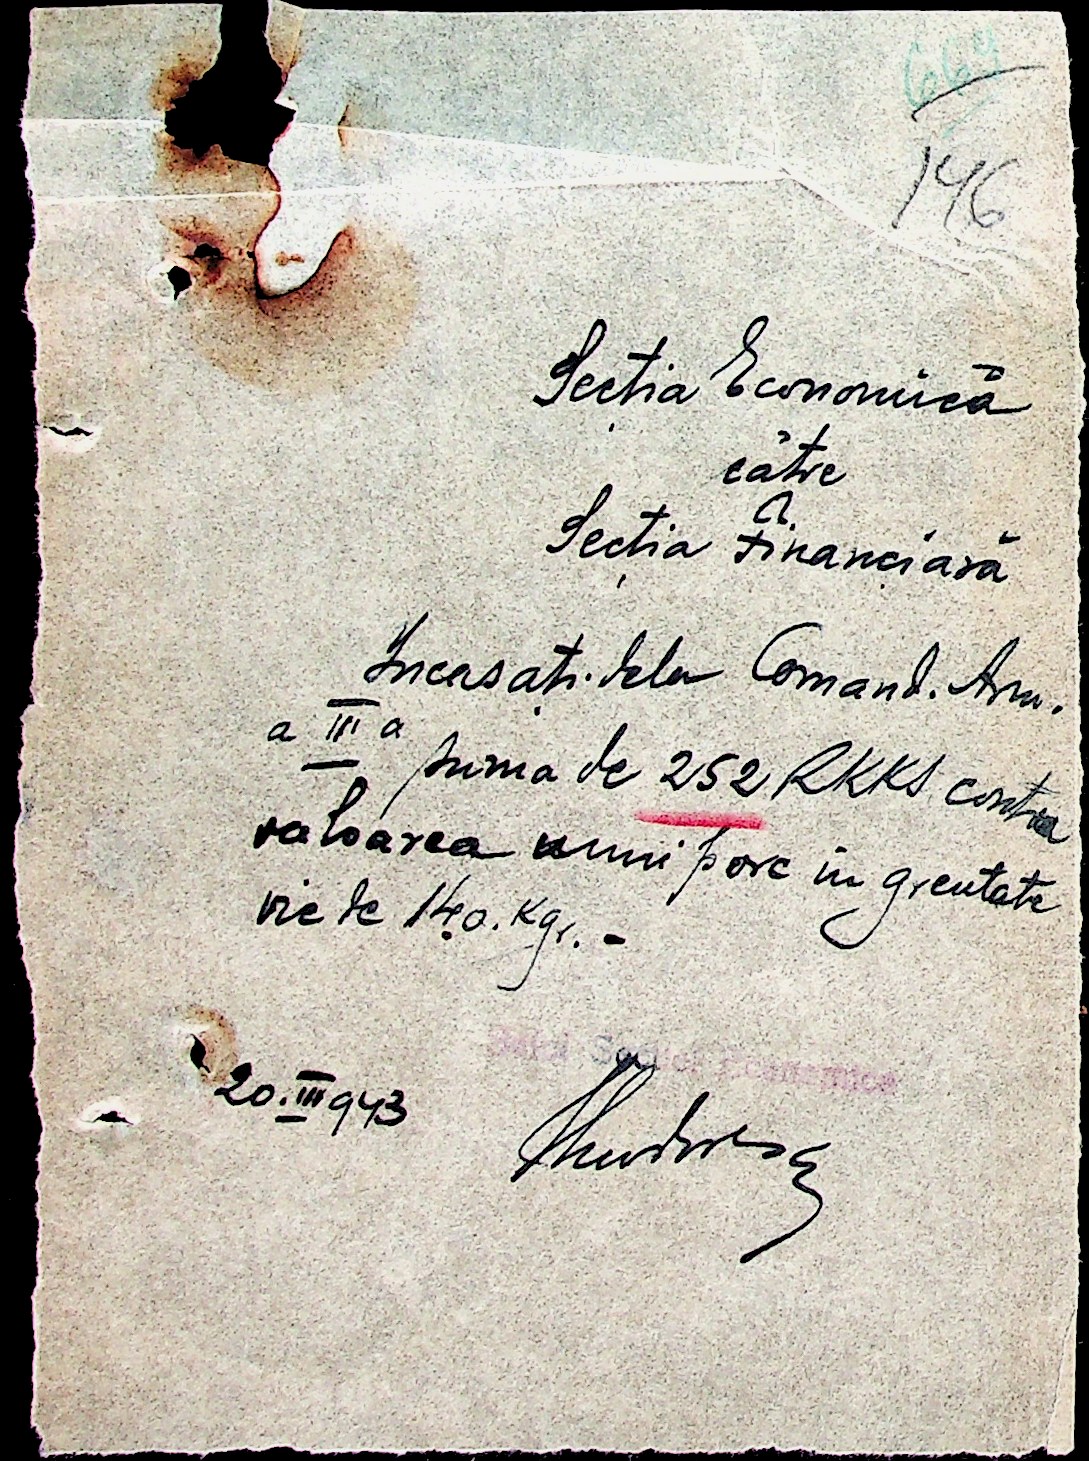 664
146
Secția Economică
către
Secția Financiară
Incasați dela Comand. Arm.
a III a suma de 252 RKKS contra
valoarea unui porc in greutate
vie de 140. Kgr. -
20.III 943